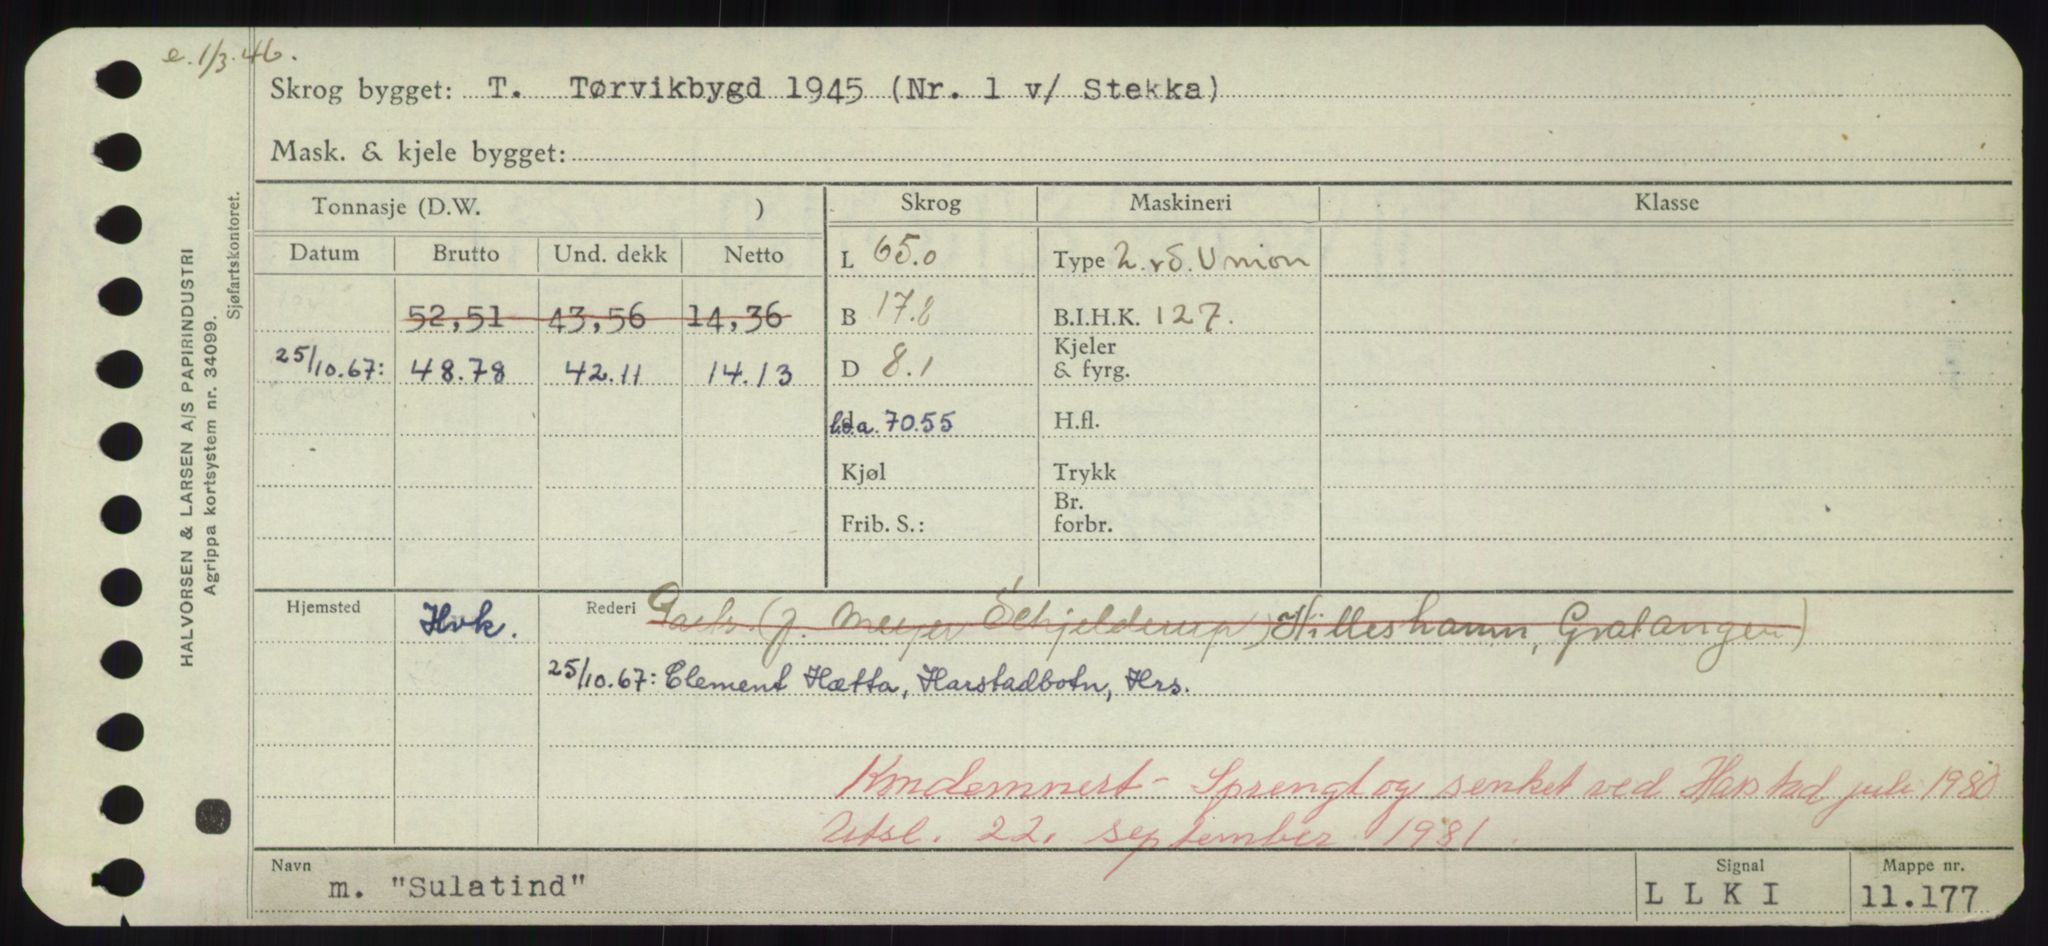 e. 1/3.46.
Skrog bygget: T. Tørvikbygd 1945 (Nr. 1 v/ Stekka)
Mask. & kjele bygget:
HALVORSEN & LARSEN A/S PAPIRINDUSTRI
Agrippa kortsystem nr. 34099.
Sjøfartskontoret.
Tonnasje (D.W. ) Skrog Maskineri Klasse
Datum Brutto Und. dekk Netto L 65.0 Type 2. sd. Union
52,51 43,56 14,36 B 17.8 B.I.H.K. 127.
25/10.67: 48.78 42.11 14.13 D 8.1 Kjeler & fyrg.
l.o.a. 70.55 H.fl.
Kjøl Trykk
Frib. S.: Br. forbr.
Hjemsted Hvk. Rederi (J. Meyer Schjelderup) Hilleshamn, Gratangen)
25/10.67: Element Hætta, Harstadbotn, Hrs.
Kondemnert - Sprengt og senket ved Harstad juli 1980
Utsl. 22. september 1981.
Navn m. "Sulatind" Signal L L K I Mappe nr. 11.177